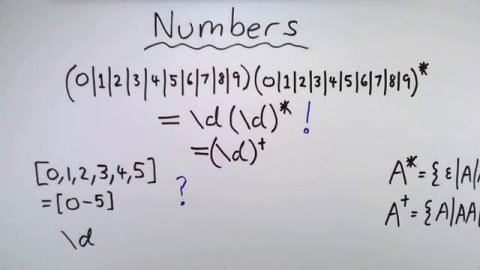 Numbers
(0|1|2|3|4|5|6|7|8|9)(0|1|2|3|4|5|6|7|8|9)*
= \d (\d)* !
=(\d)+
[0,1,2,3,4,5]
= [0-5]
?
\d
A* = { ε|A|A
A+ = {A|AA|